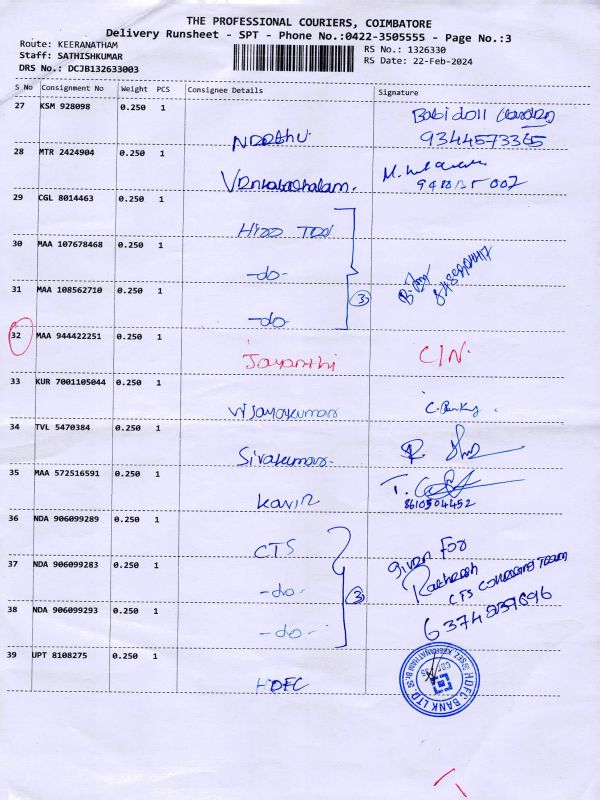 THE PROFESSIONAL COURIERS, COIMBATORE
Delivery Runsheet - SPT - Phone No.:0422-3505555 - Page No.:3
Route: KEERANATHAM
RS No.: 1326330
Staff: SATHISHKUMAR
RS Date: 22-Feb-2024
DRS No.: DCJB132633003
S No Consignment No Weight PCS Consignee Details Signature
27 KSM 928098 0.250 1
9344573365
28 MTR 2424904 0.250 1
Venkatachalam.
29 CGL 8014463 0.250 1
30 MAA 107678468 0.250 1 -do-
31 MAA 108562710 0.250 1 -do- 3
32 MAA 944422251 0.250 1 Jayanthi C/N.
33 KUR 7001105044 0.250 1 Vijayakumar
34 TVL 5470384 0.250 1 Sivakumar
35 MAA 572516591 0.250 1 Kavin
8610504452
36 NDA 906099289 0.250 1 CTS Given For
37 NDA 906099283 0.250 1 -do- 3
38 NDA 906099293 0.250 1 -do- 6374837696
39 UPT 8108275 0.250 1 HDFC
HDFC BANK LTD.